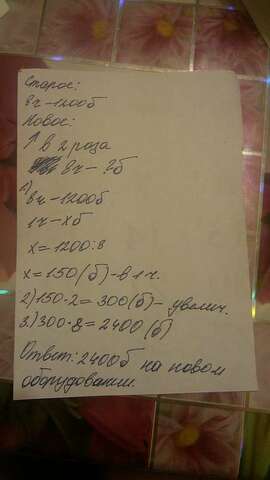 Старое:
8ч-1200б
Новое:
↑ в 2 роза
8ч-?б
1)
8ч-1200б
1ч-хб
х=1200:8
х=150(б)-в 1ч.
2)150·2=300(б)-увелич.
3.)300·8=2400(б)
Ответ:2400б на новом
оборудовании.